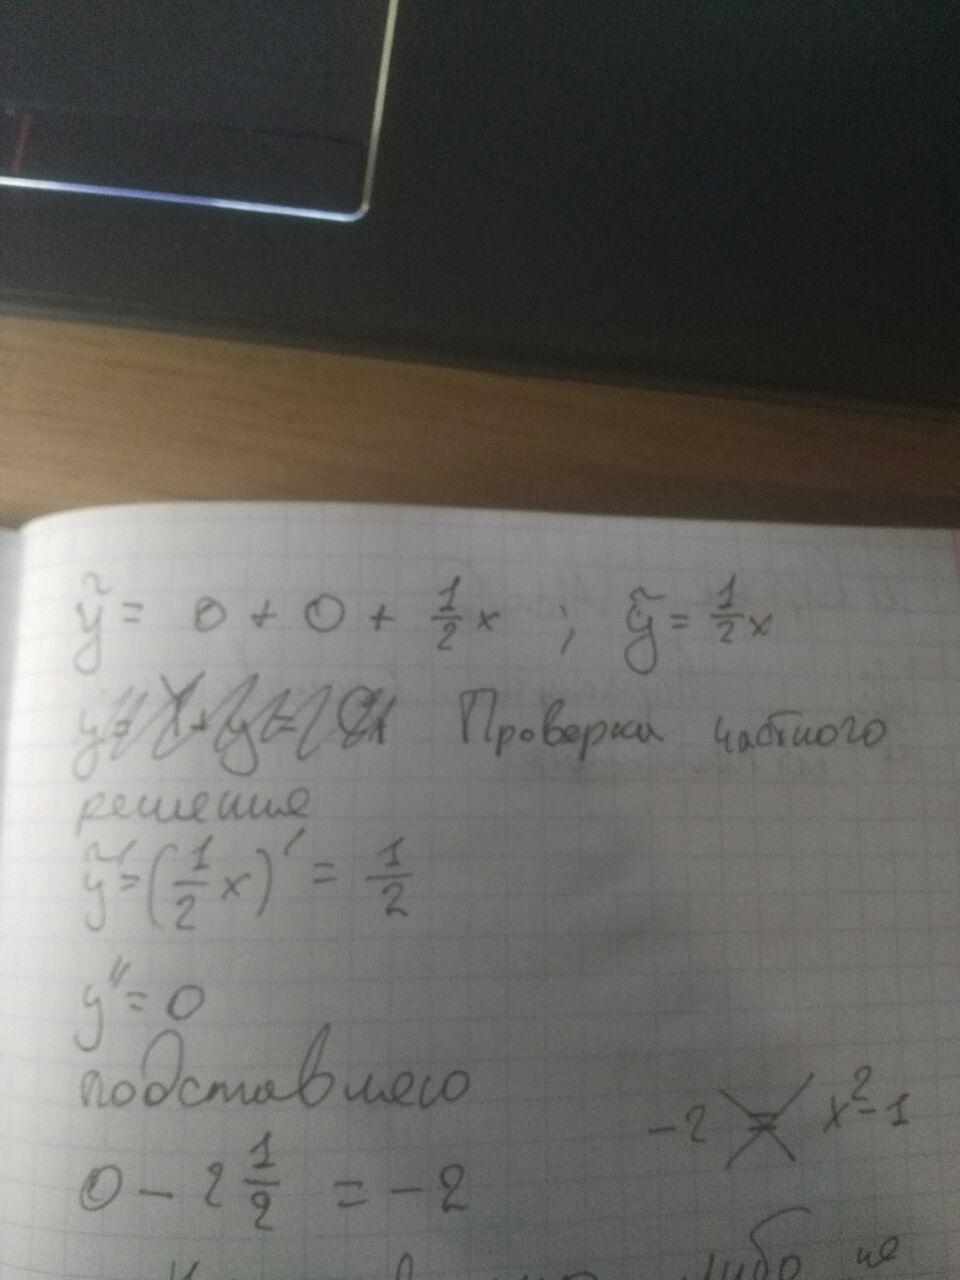 ỹ = 0 + 0 + 1/2 x ; ỹ = 1/2 x
Проверка частного
решения
ỹ' = (1/2 x)' = 1/2
y'' = 0
подставляю
-2 = x² - 1
0 - 2 1/2 = -2
либо не